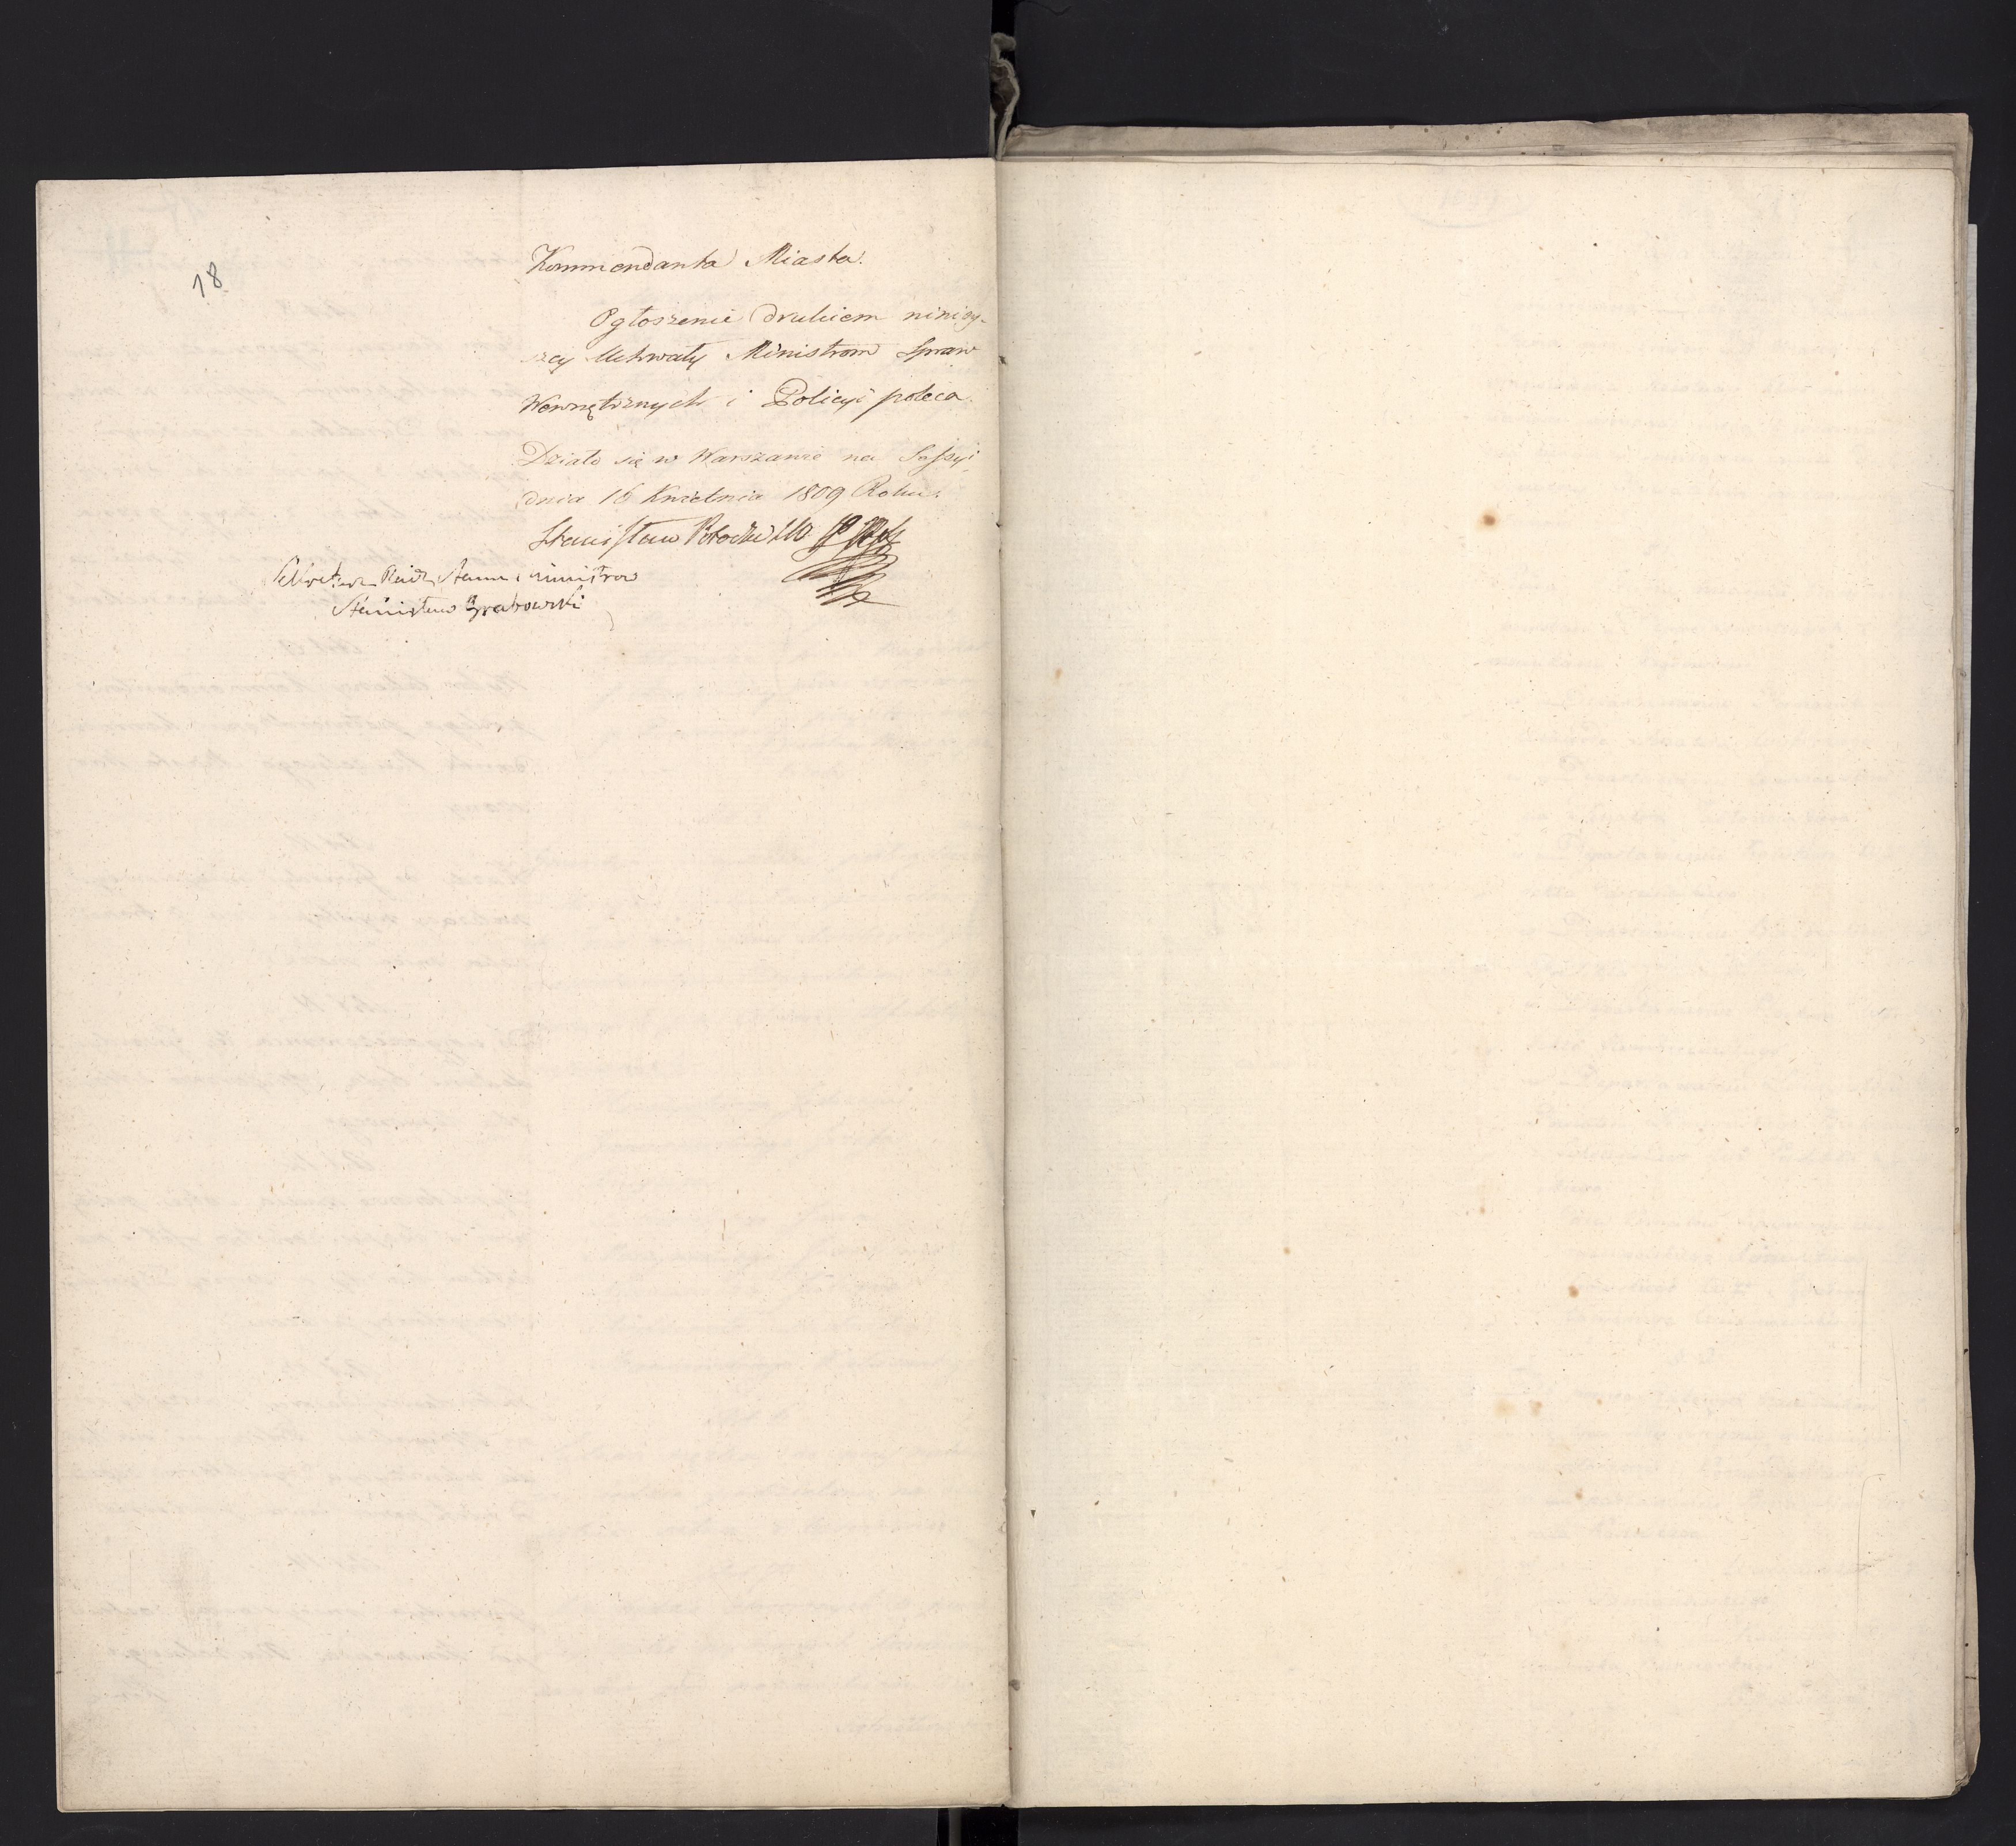 18
Kommendanta Miasta.
Ogłoszenie drukiem niniey-
szey Uchwały Ministrom Spraw
Wewnętrznych i Policyi poleca.
Działo się w Warszawie na Sessyi
dnia 16 Kwietnia 1809 Roku.
Stanisław Potocki
Sekretarz Rady Stanu i ministrow
Stanisław Grabowski